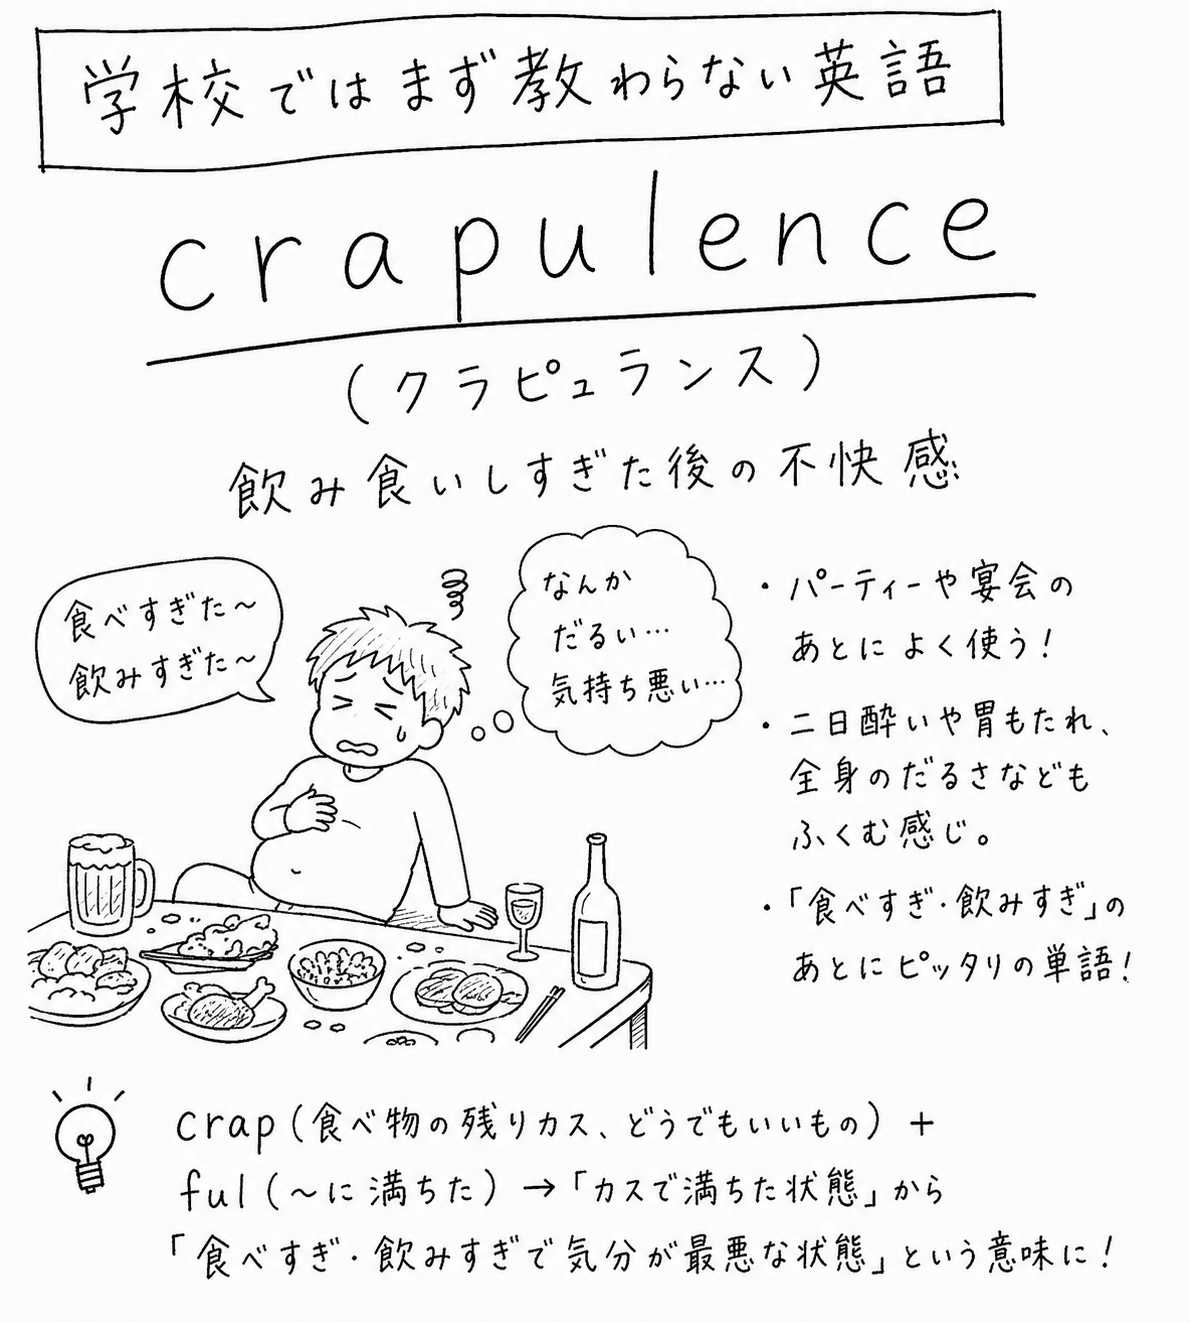 学校ではまず教わらない英語
crapulence
(クラピュランス)
飲み食いしすぎた後の不快感
食べすぎた〜
飲みすぎた〜
なんか
だるい…
気持ち悪い…
・パーティーや宴会の
あとによく使う!
・二日酔いや胃もたれ、
全身のだるさなども
ふくむ感じ。
・「食べすぎ・飲みすぎ」の
あとにピッタリの単語!
crap(食べ物の残りカス、どうでもいいもの)+
ful(〜に満ちた)→「カスで満ちた状態」から
「食べすぎ・飲みすぎで気分が最悪な状態」という意味に!